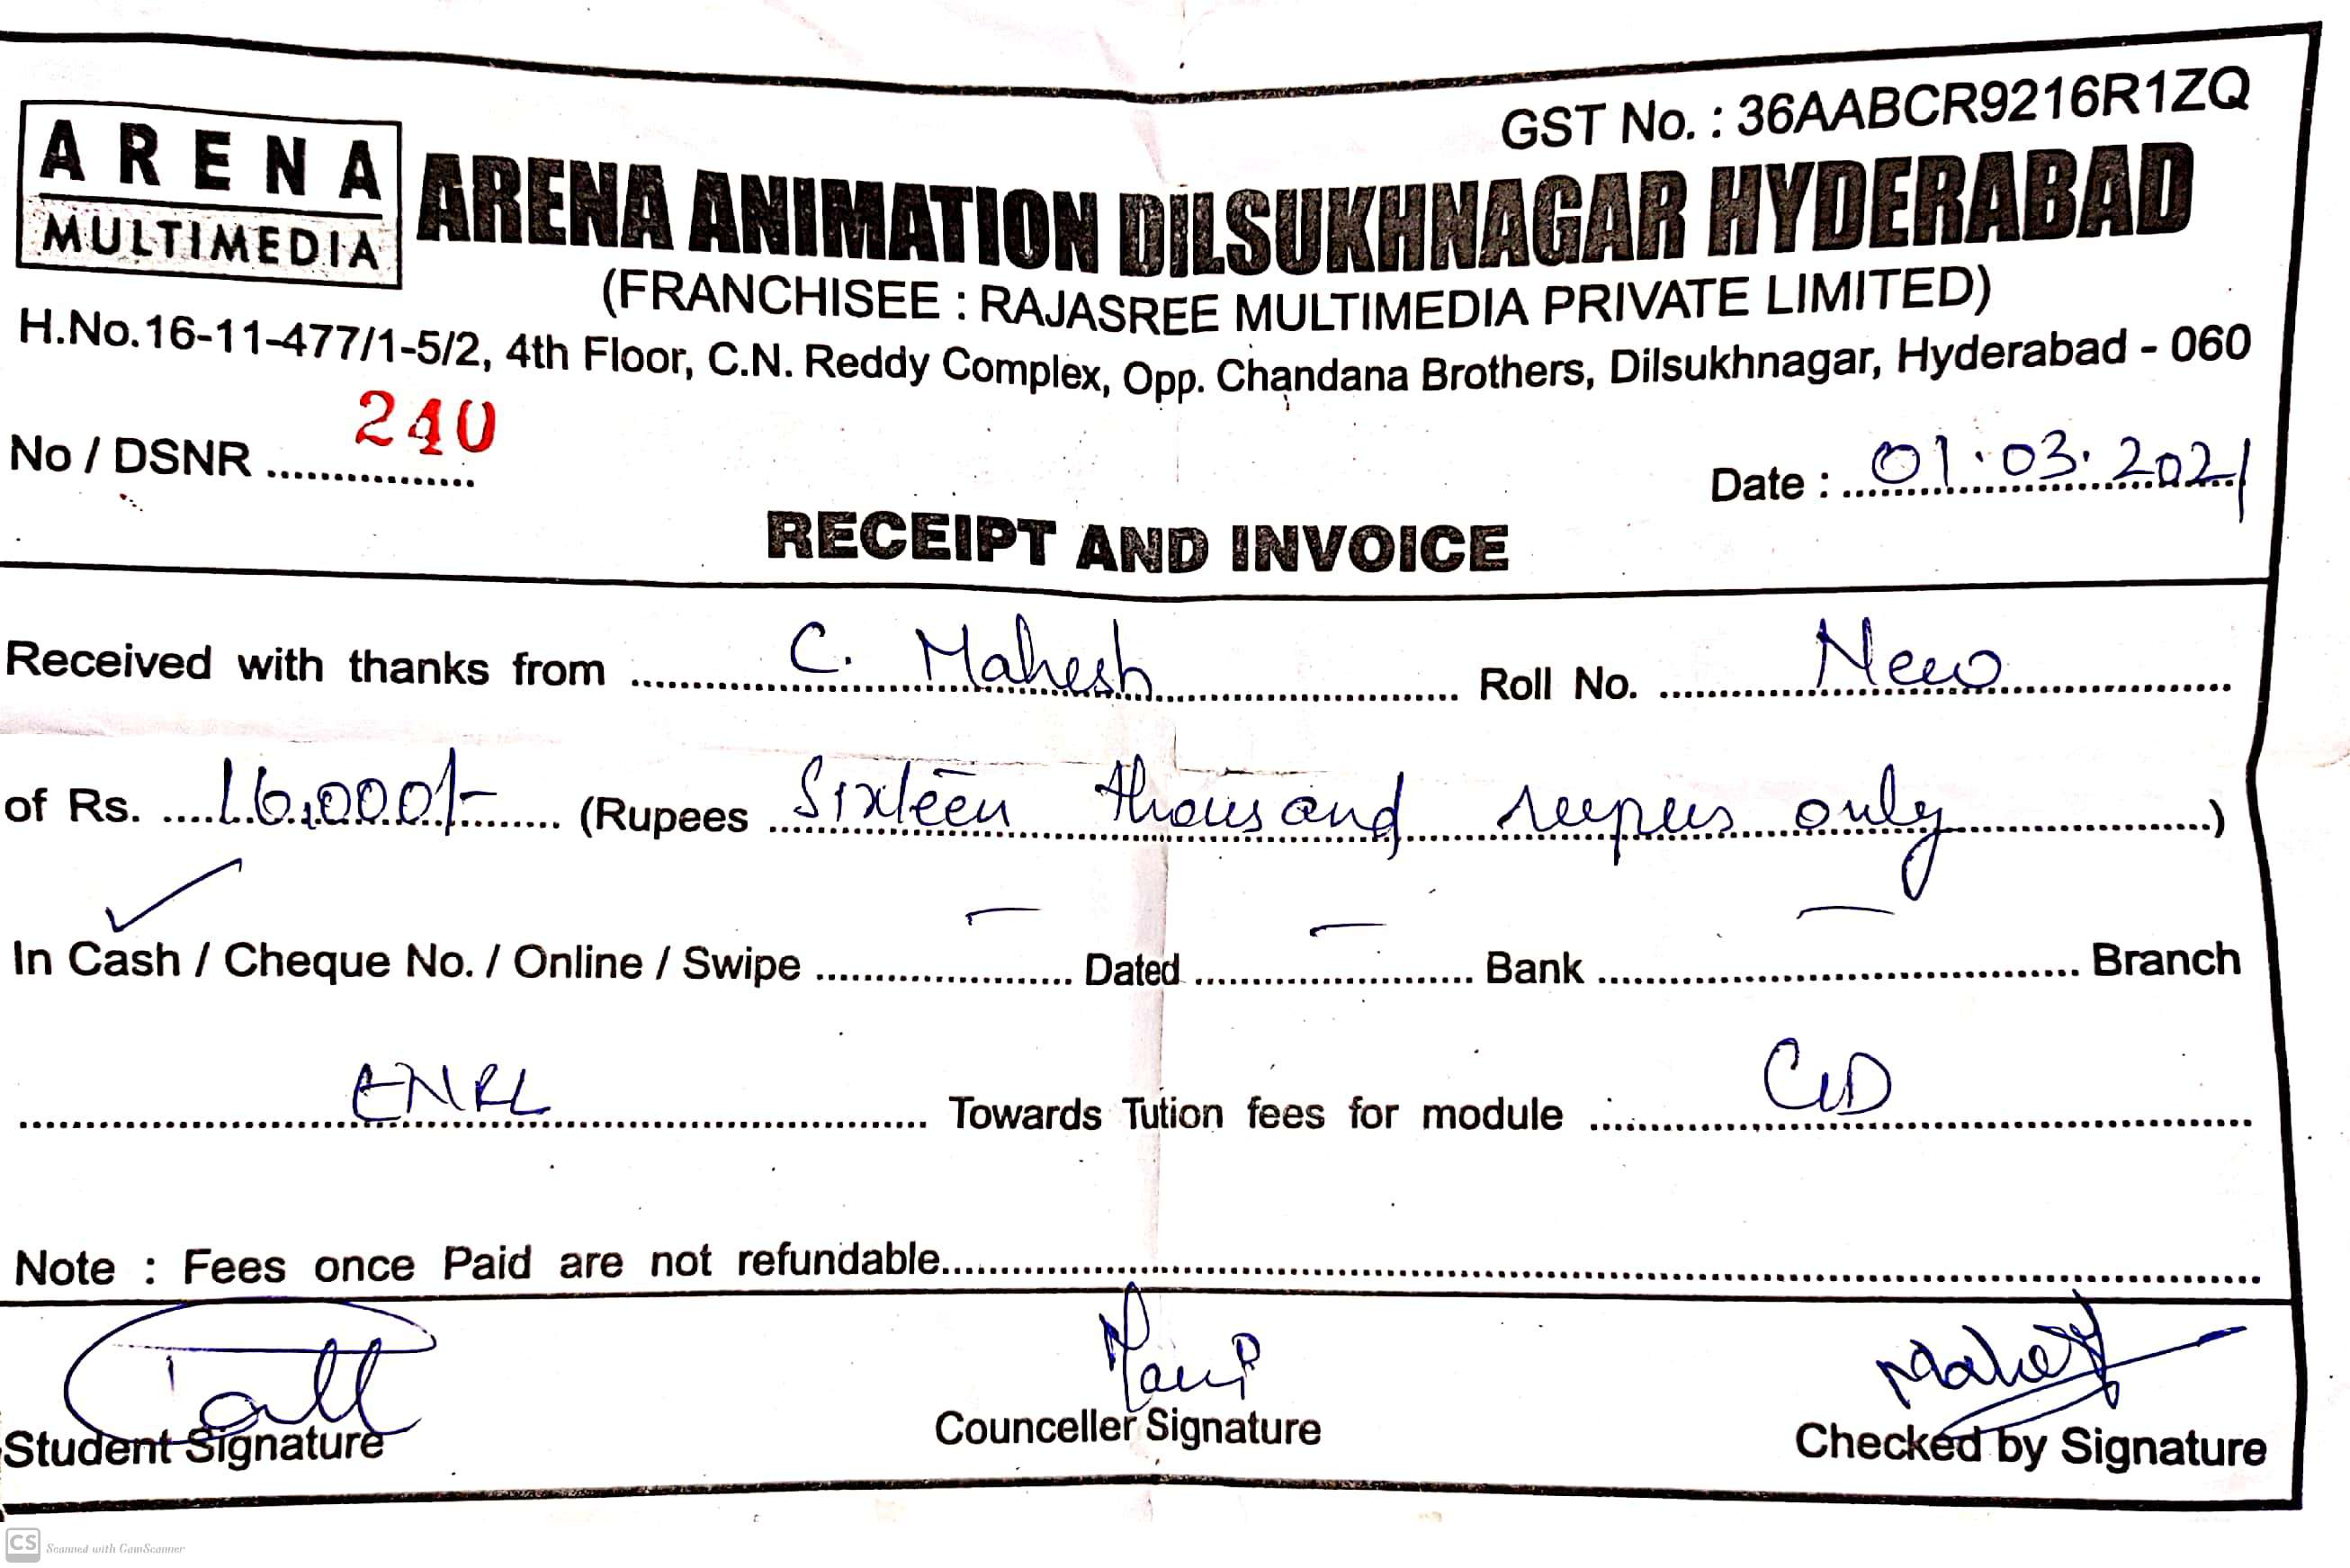 GST No. : 36AABCR9216R1ZQ
ARENA
MULTIMEDIA
ARENA ANIMATION DILSUKHNAGAR HYDERABAD
(FRANCHISEE : RAJASREE MULTIMEDIA PRIVATE LIMITED)
H.No.16-11-477/1-5/2, 4th Floor, C.N. Reddy Complex, Opp. Chandana Brothers, Dilsukhnagar, Hyderabad - 060
No / DSNR 240 Date : 01.03.2021
RECEIPT AND INVOICE
Received with thanks from C. Mahesh Roll No. New
of Rs. 16,000/- (Rupees Sixteen thousand rupees only)
In Cash / Cheque No. / Online / Swipe — Dated — Bank — Branch
ENRL Towards Tution fees for module :
Note : Fees once Paid are not refundable
Student Signature Counceller Signature Checked by Signature
CS Scanned with CamScanner